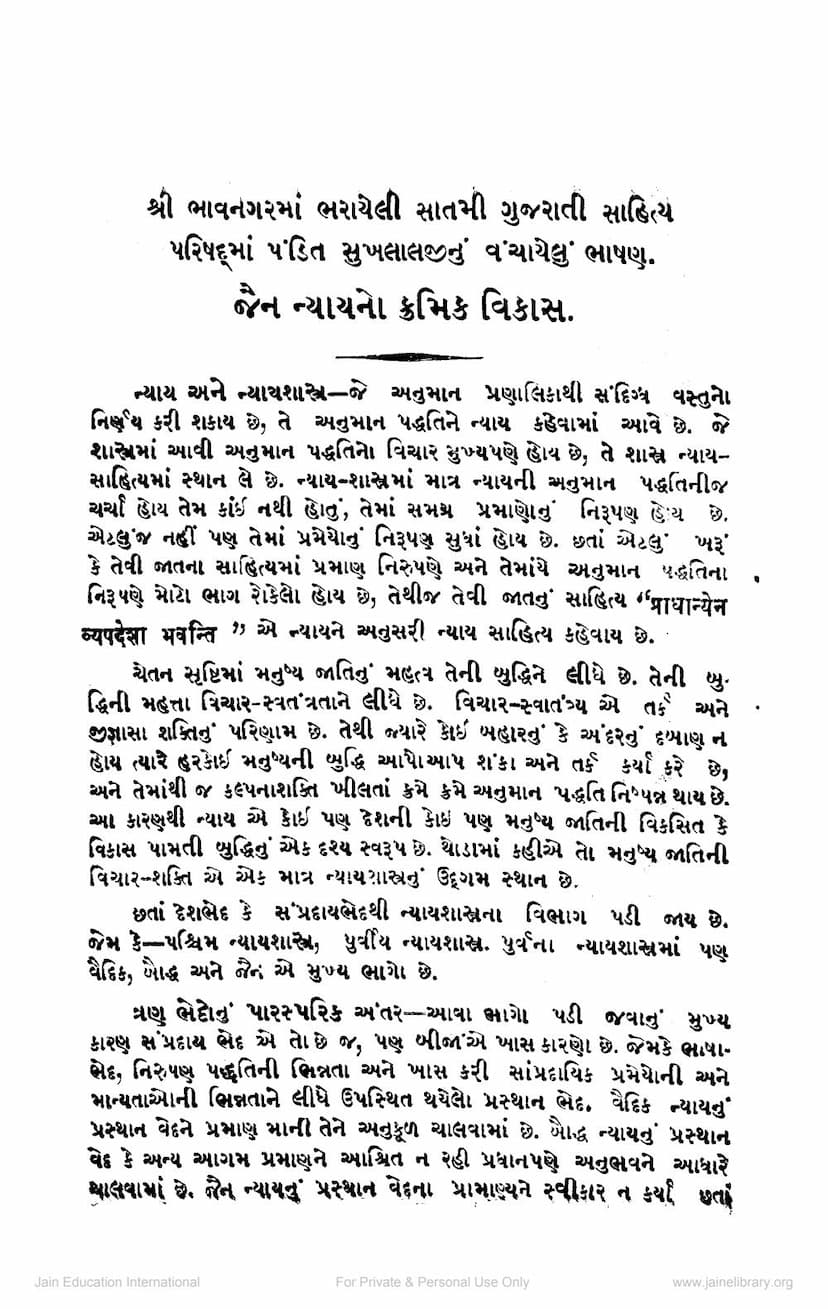 શ્રી ભાવનગરમાં ભરાયેલી સાતમી ગુજરાતી સાહિત્ય
પરિષદ્‌માં પંડિત સુખલાલજીનું વંચાયેલું ભાષણ.
જૈન ન્યાયનો ક્રમિક વિકાસ.
ન્યાય અને ન્યાયશાસ્ત્ર—જે અનુમાન પ્રણાલિકાથી સંદિગ્ધ વસ્તુનો
નિર્ણય કરી શકાય છે, તે અનુમાન પદ્ધતિને ન્યાય કહેવામાં આવે છે. જે
શાસ્ત્રમાં આવી અનુમાન પદ્ધતિનો વિચાર મુખ્યપણે હોય છે, તે શાસ્ત્ર ન્યાય-
સાહિત્યમાં સ્થાન લે છે. ન્યાય-શાસ્ત્રમાં માત્ર ન્યાયની અનુમાન પદ્ધતિનીજ
ચર્ચા હોય તેમ કાંઈ નથી હોતું, તેમાં સમગ્ર પ્રમાણોનું નિરૂપણ હોય છે.
એટલુંજ નહીં પણ તેમાં પ્રમેયોનું નિરૂપણ સુધાં હોય છે. છતાં એટલું ખરૂં
કે તેવી જાતના સાહિત્યમાં પ્રમાણ નિરુપણે અને તેમાંયે અનુમાન પદ્ધતિના
નિરૂપણે મોટો ભાગ રોકેલો હોય છે, તેથીજ તેવી જાતનું સાહિત્ય “प्राधान्येन
व्यपदेशा भवन्ति ” એ ન્યાયને અનુસરી ન્યાય સાહિત્ય કહેવાય છે.
ચેતન સૃષ્ટિમાં મનુષ્ય જાતિનું મહત્વ તેની બુદ્ધિને લીધે છે. તેની બુ-
દ્ધિની મહત્તા વિચાર-સ્વતંત્રતાને લીધે છે. વિચાર-સ્વાતંત્ર્ય એ તર્ક અને
જીજ્ઞાસા શક્તિનું પરિણામ છે. તેથી જ્યારે કોઈ બહારનું કે અંદરનું દબાણ ન
હોય ત્યારે હરકોઈ મનુષ્યની બુદ્ધિ આપોઆપ શંકા અને તર્ક કર્યા કરે છે,
અને તેમાંથી જ કલ્પનાશક્તિ ખીલતાં ક્રમે ક્રમે અનુમાન પદ્ધતિ નિષ્પન્ન થાય છે.
આ કારણથી ન્યાય એ કોઈ પણ દેશની કોઈ પણ મનુષ્ય જાતિની વિકસિત કે
વિકાસ પામતી બુદ્ધિનું એક દૃશ્ય સ્વરૂપ છે. થોડામાં કહીએ તો મનુષ્ય જાતિની
વિચાર-શક્તિ એ એક માત્ર ન્યાયશાસ્ત્રનું ઉદ્દગમ સ્થાન છે.
છતાં દેશભેદ કે સંપ્રદાયભેદથી ન્યાયશાસ્ત્રના વિભાગ પડી જાય છે.
જેમ કે—પશ્ચિમ ન્યાયશાસ્ત્ર, પુર્વીય ન્યાયશાસ્ત્ર. પુર્વના ન્યાયશાસ્ત્રમાં પણ
વૈદિક, બૌદ્ધ અને જૈન એ મુખ્ય ભાગો છે.
ત્રણ ભેદોનું પારસ્પરિક અંતર—આવા ભાગો પડી જવાનું મુખ્ય
કારણ સંપ્રદાય ભેદ એ તો છે જ, પણ બીજાંએ ખાસ કારણો છે. જેમકે ભાષા-
ભેદ, નિરુપણ પદ્ધતિની ભિન્નતા અને ખાસ કરી સાંપ્રદાયિક પ્રમેયોની અને
માન્યતાઓની ભિન્નતાને લીધે ઉપસ્થિત થયેલો પ્રસ્થાન ભેદ. વૈદિક ન્યાયનું
પ્રસ્થાન વેદને પ્રમાણ માની તેને અનુકૂળ ચાલવામાં છે. બૌદ્ધ ન્યાયનું પ્રસ્થાન
વેદ કે અન્ય આગમ પ્રમાણને આશ્રિત ન રહી પ્રધાનપણે અનુભવને આધારે
ચાલવામાં છે. જૈન ન્યાયનું પ્રસ્થાન વેદના પ્રામાણ્યને સ્વીકાર ન કર્યા છતાં
Jain Education International
For Private & Personal Use Only
www.jainelibrary.org